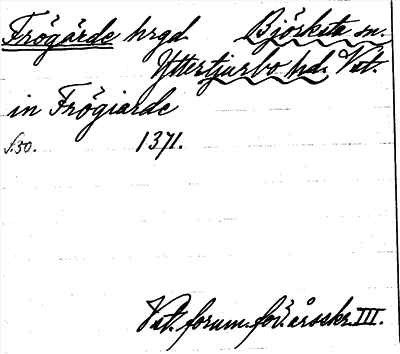 Frögärde hrgd. Björksta sn.
Yttertjurbo hd. Vst.
in Frögiarde
s. 50. 1371.
Vst. fornm. för. årsskr. III.